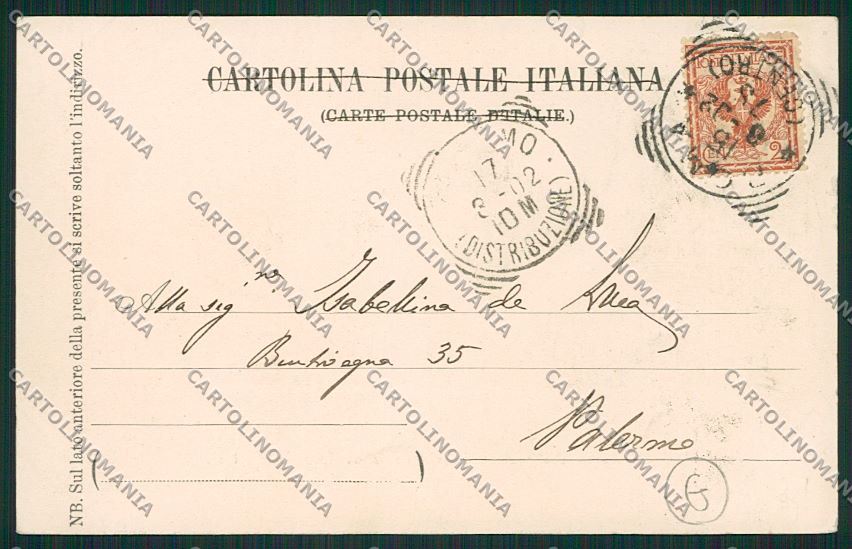 CARTOLINA POSTALE ITALIANA
(CARTE POSTALE D'ITALIE.)
NB. Sul lato anteriore della presente si scrive soltanto l'indirizzo.
(CENTRO)
MO
17
3-02
10 M
(DISTRIBUZIONE)
2
Alla sig.na Isabellina de Luca
35
Palermo
CARTOLINOMANIA